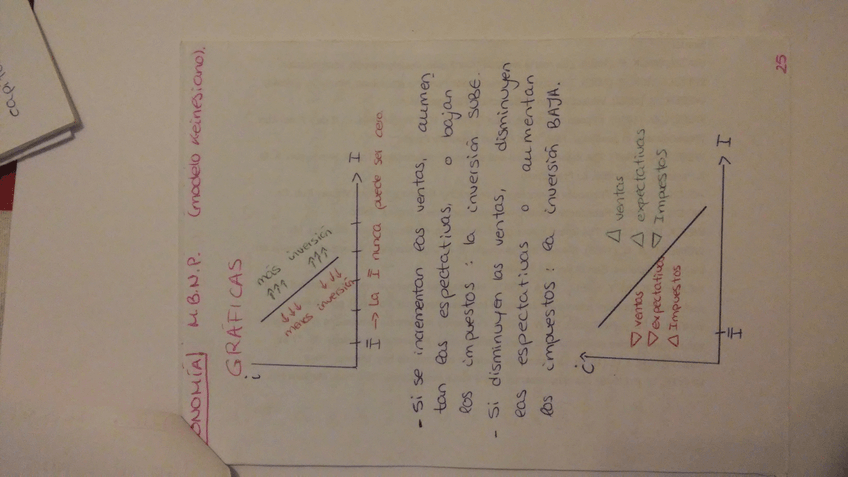 ONOMÍA) M.B.N.P. (modelo Keinesiano).
GRÁFICAS
i
más inversión
↑↑↑ ↑↑↑
↓↓↓ ↓↓↓
menos inversión
I
Ī → La Ī nunca puede ser cero.
- Si se incrementan las ventas, aumen
tan las espectativas, o bajan
los impuestos : la inversión SUBE.
- Si disminuyen las ventas, disminuyen
las espectativas o aumentan
los impuestos : la inversión BAJA.
i
△ ventas
△ expectativas
▽ Impuestos
▽ ventas
▽ expectativas
△ Impuestos
I
Ī
25
cap